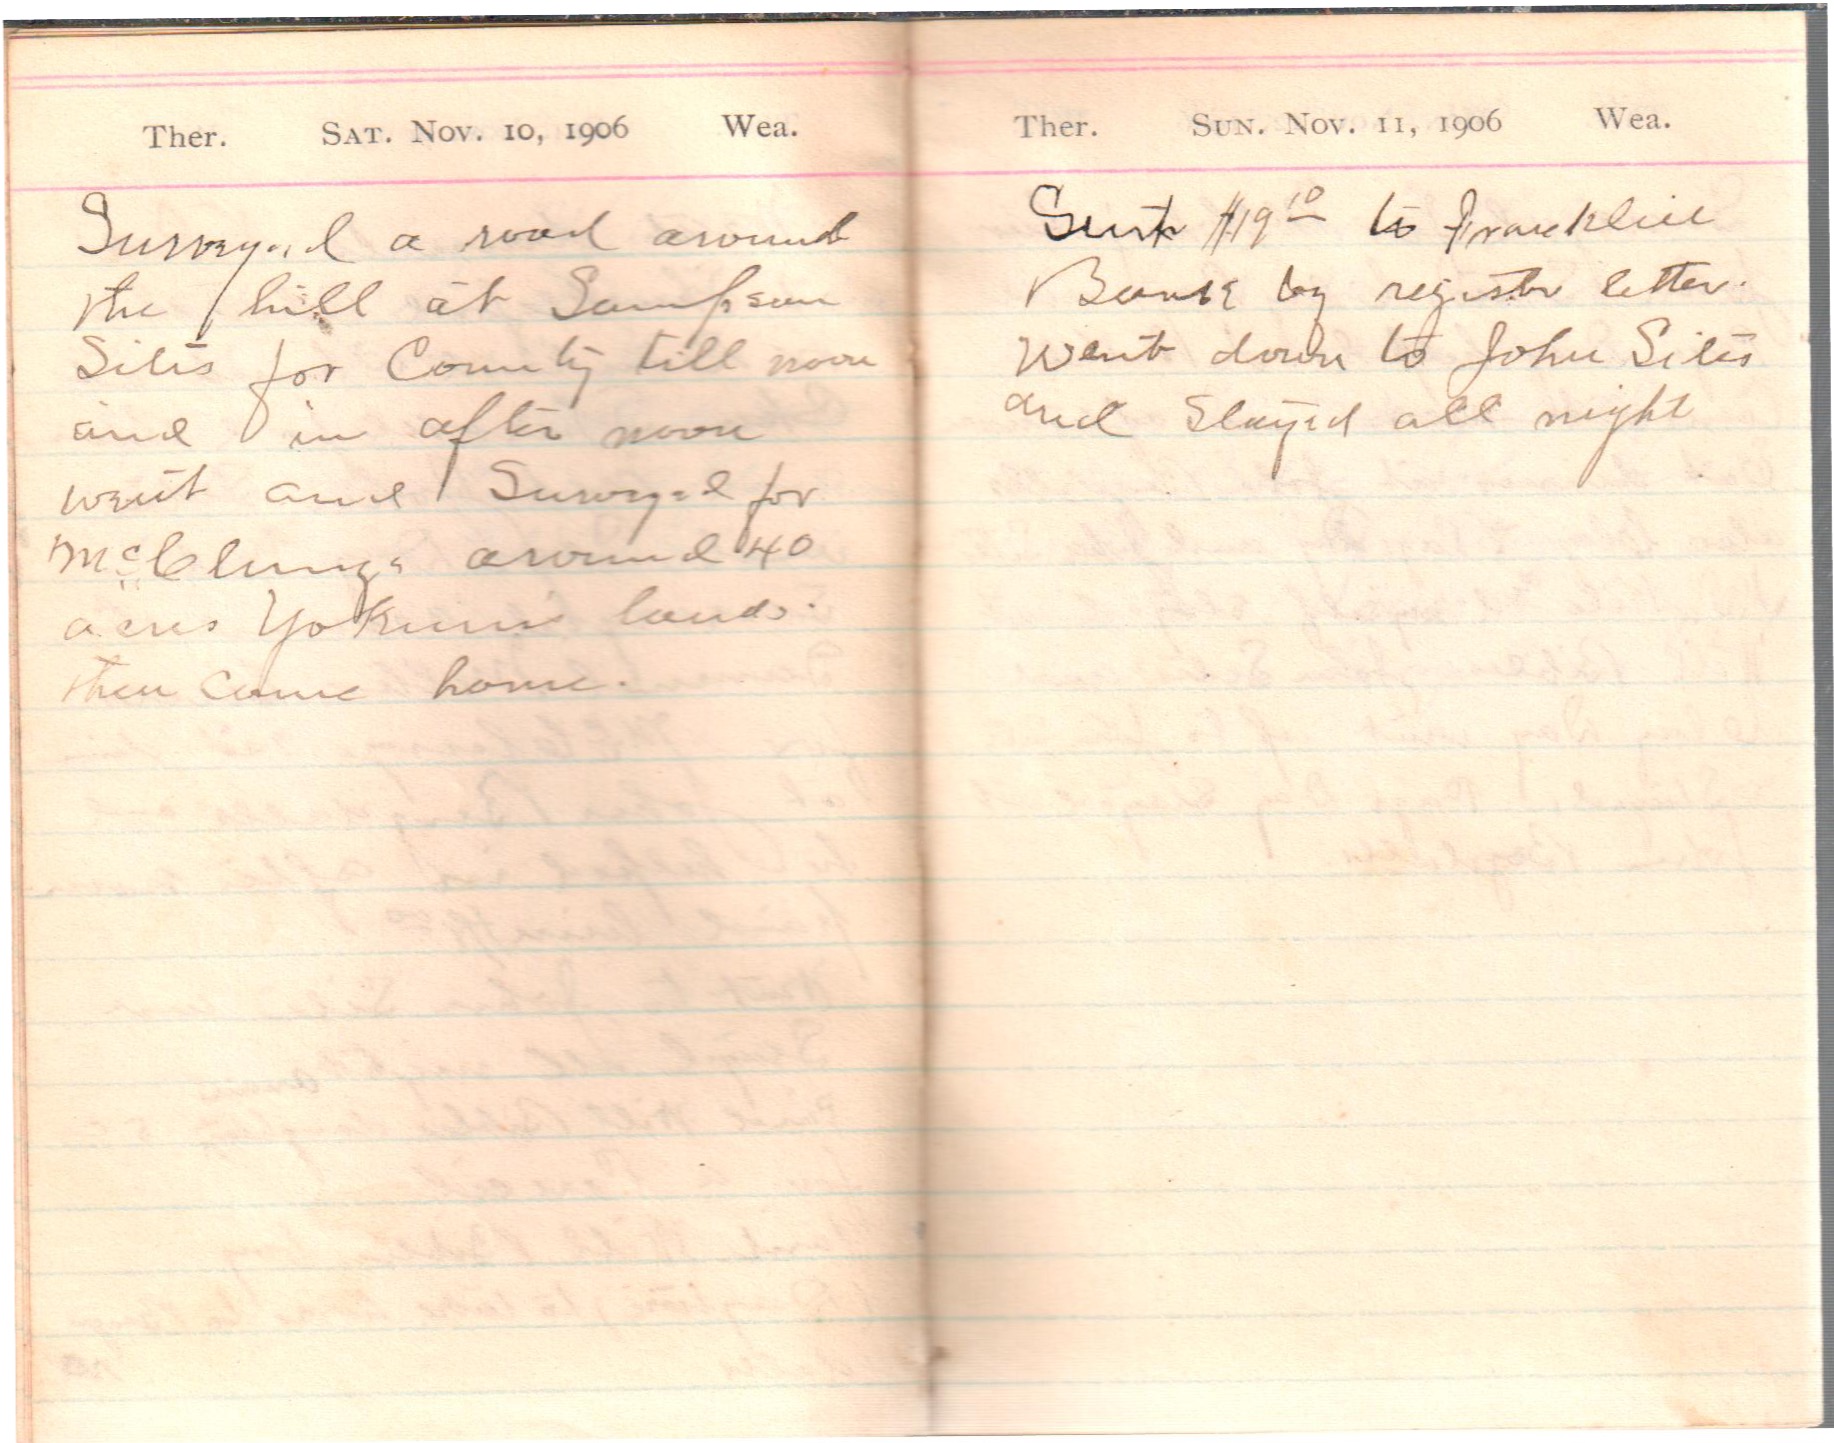 Ther. Sat. Nov. 10, 1906 Wea.
Surveyed a road around
the hill at Sampson
Sites for County till noon
and in after noon
went and Surveyed for
McClungs around 40
acres Yokums lands.
then came home.
Ther. Sun. Nov. 11, 1906 Wea.
Sent $19 10 to Franklin
Bank by registr letter.
Went down to John Sites
and Stayed all night